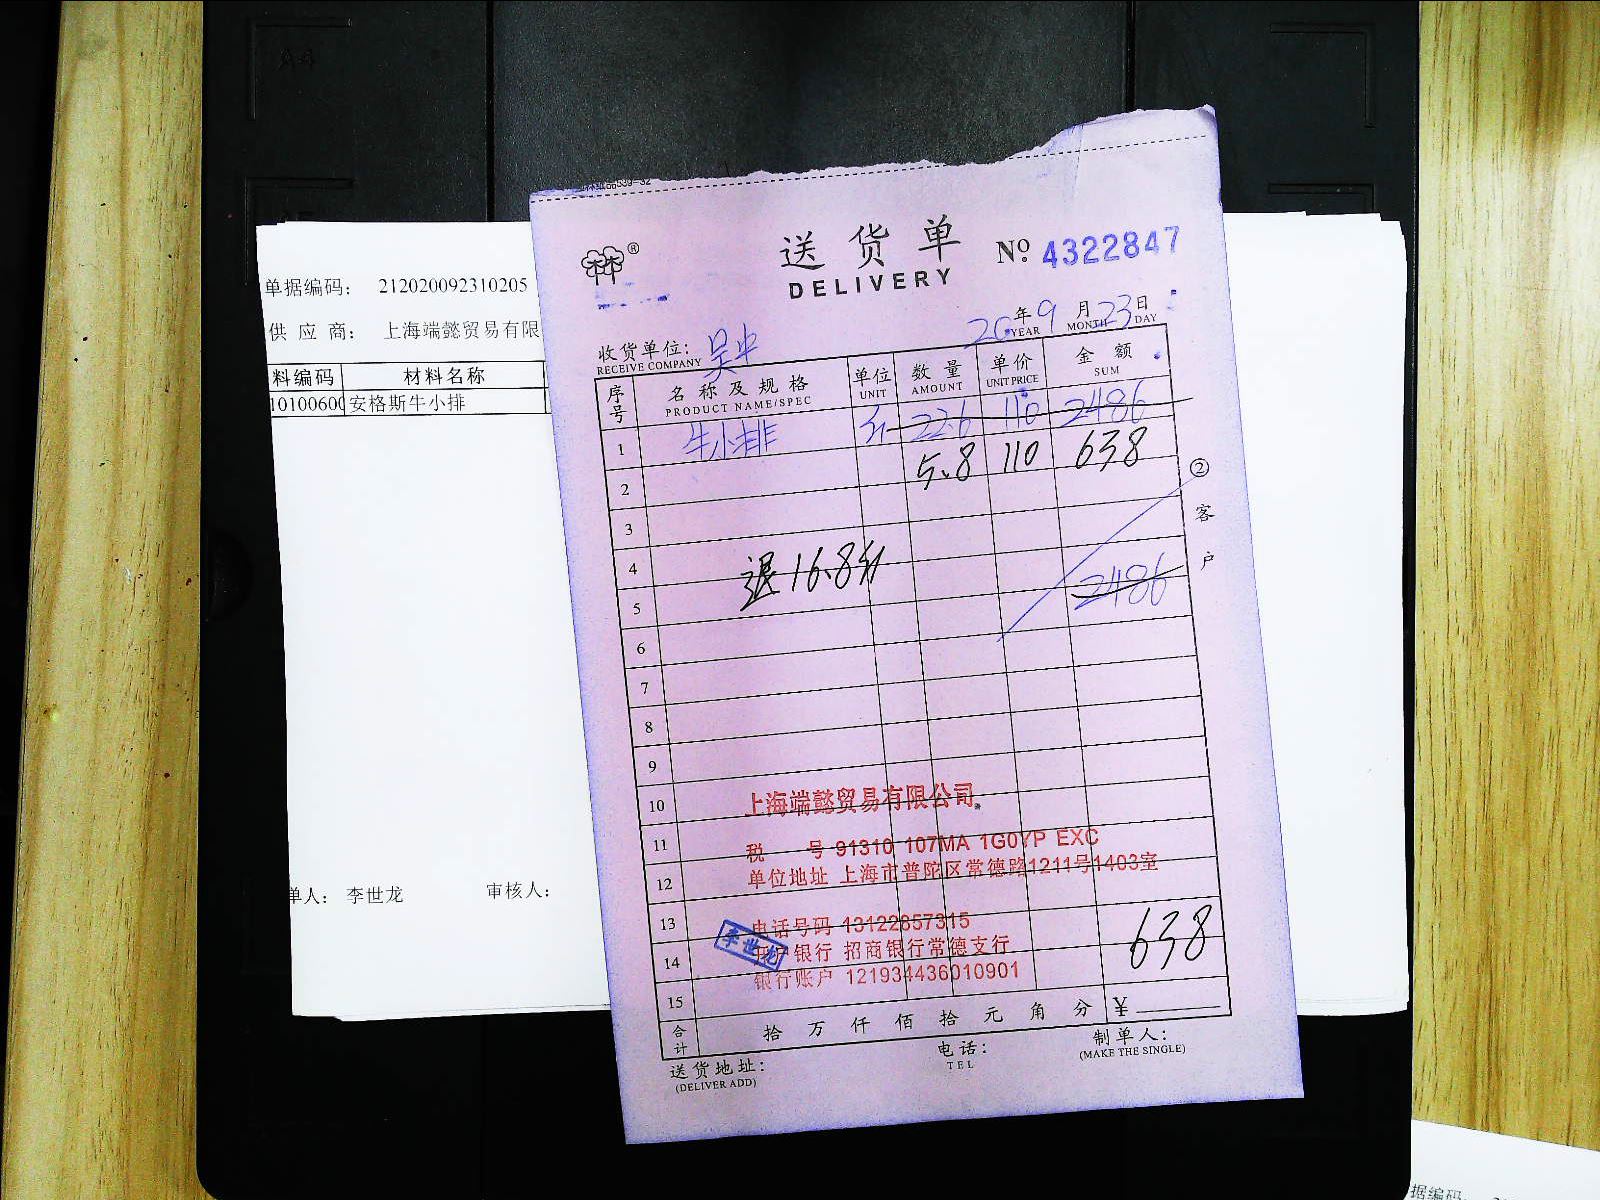 送货单
DELIVERY
№ 4322847
®
单据编码： 212020092310205
供 应 商： 上海端懿贸易有限
料编码 材料名称
10100600 安格斯牛小排
收货单位： 吴中
RECEIVE COMPANY
20 年 9 月 23 日
YEAR MONTH DAY
序号 名称及规格 单位 数量 单价 金额
PRODUCT NAME/SPEC UNIT AMOUNT UNIT PRICE SUM
1 牛小排 斤 22.6 110 2486
2 5.8 110 638
3
4 退16.8斤
5 2486
6
7
8
9
10
11
12
13
14
15
② 客户
上海端懿贸易有限公司
税 号 91310 107MA 1G0YP EXC
单位地址 上海市普陀区常德路1211号1403室
电话号码 13122857315
开户银行 招商银行常德支行
银行账户 121934436010901
李世龙
638
合计 拾 万 仟 佰 拾 元 角 分 ¥
送货地址：
(DELIVER ADD)
电话：
TEL
制单人：
(MAKE THE SINGLE)
单人： 李世龙 审核人：
据编码：